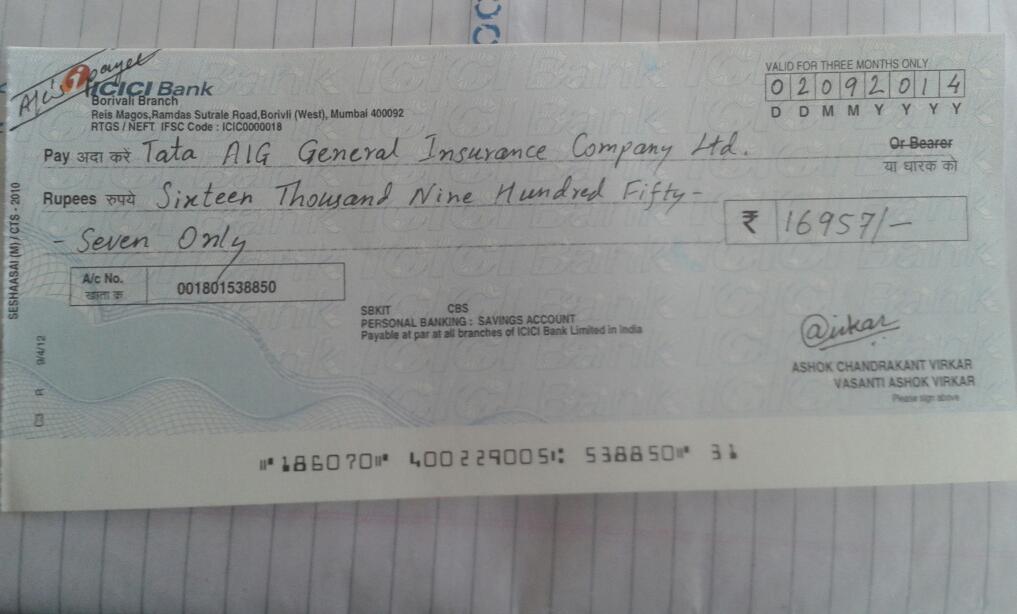 A/c payee
ICICI Bank
Borivali Branch
Reis Magos,Ramdas Sutrale Road,Borivli (West), Mumbai 400092
RTGS / NEFT IFSC Code : ICIC0000018
VALID FOR THREE MONTHS ONLY
0 2 0 9 2 0 1 4
D D M M Y Y Y Y
Pay अदा करें Tata AIG General Insurance Company Ltd. Or Bearer
या धारक को
Rupees रुपये Sixteen Thousand Nine Hundred Fifty-
- Seven Only
₹ 16957/-
A/c No. 001801538850
खाता क्र.
SBKIT CBS
PERSONAL BANKING : SAVINGS ACCOUNT
Payable at par at all branches of ICICI Bank Limited in India
ASHOK CHANDRAKANT VIRKAR
VASANTI ASHOK VIRKAR
Please sign above
SESHAASAI (M) / CTS - 2010
R 9/4/12
⑈186070⑈ 400229005⑆ 538850⑈ 31